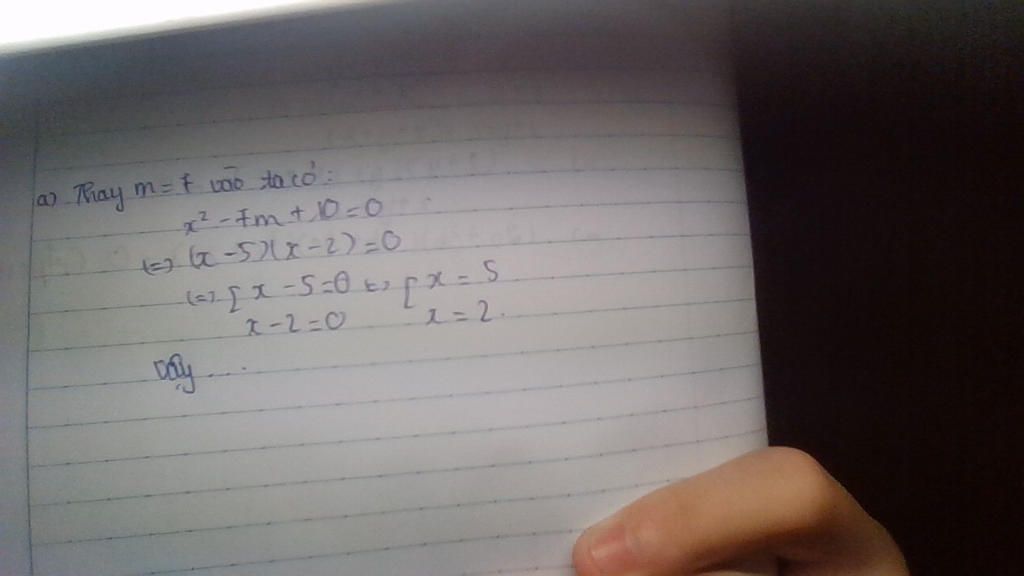 a) Thay m = 7 vào ta có:
x² - 7m + 10 = 0
(=) (x - 5)(x - 2) = 0
(=) [ x - 5 = 0 (=) [ x = 5
x - 2 = 0 x = 2.
Vậy ....